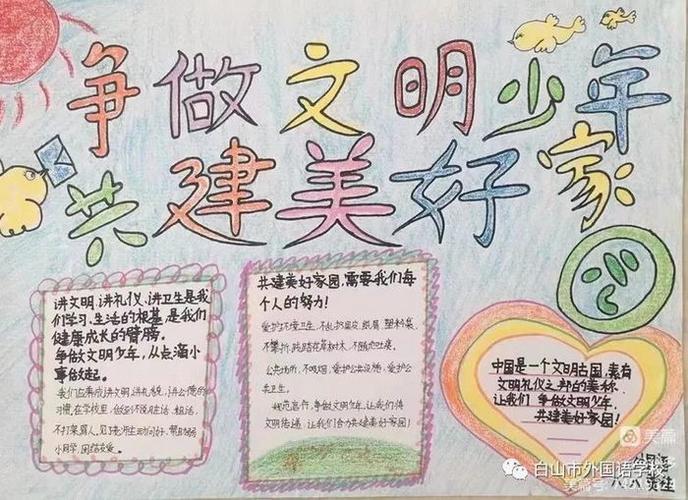 争做文明少年
共建美好家
讲文明,讲礼仪,讲卫生是我
们学习,生活的根基,是我们
健康成长的臂膀。
争做文明少年,从点滴小
事做起。
我们应养成讲文明,讲礼貌,讲公德的
习惯,在学校里,做到不说脏话、粗话,
不打架骂人,见到老师主动问好,帮助弱
小同学,团结友爱。
共建美好家园,需要我们每
个人的努力!
爱护环境卫生,不乱扔果皮,纸屑,塑料袋,
不攀折,践踏花草树木,不随地吐痰。
公共场所,不吸烟,爱护公共设施,爱护公
共卫生。
规范言行,争做文明少年,让我们将
文明传递,让我们合力共建美好家园!
中国是一个文明古国,素有
文明礼仪之邦的美称,
让我们,争做文明少年,
共建美好家园!
美篇
白山市外国语学校
美篇号